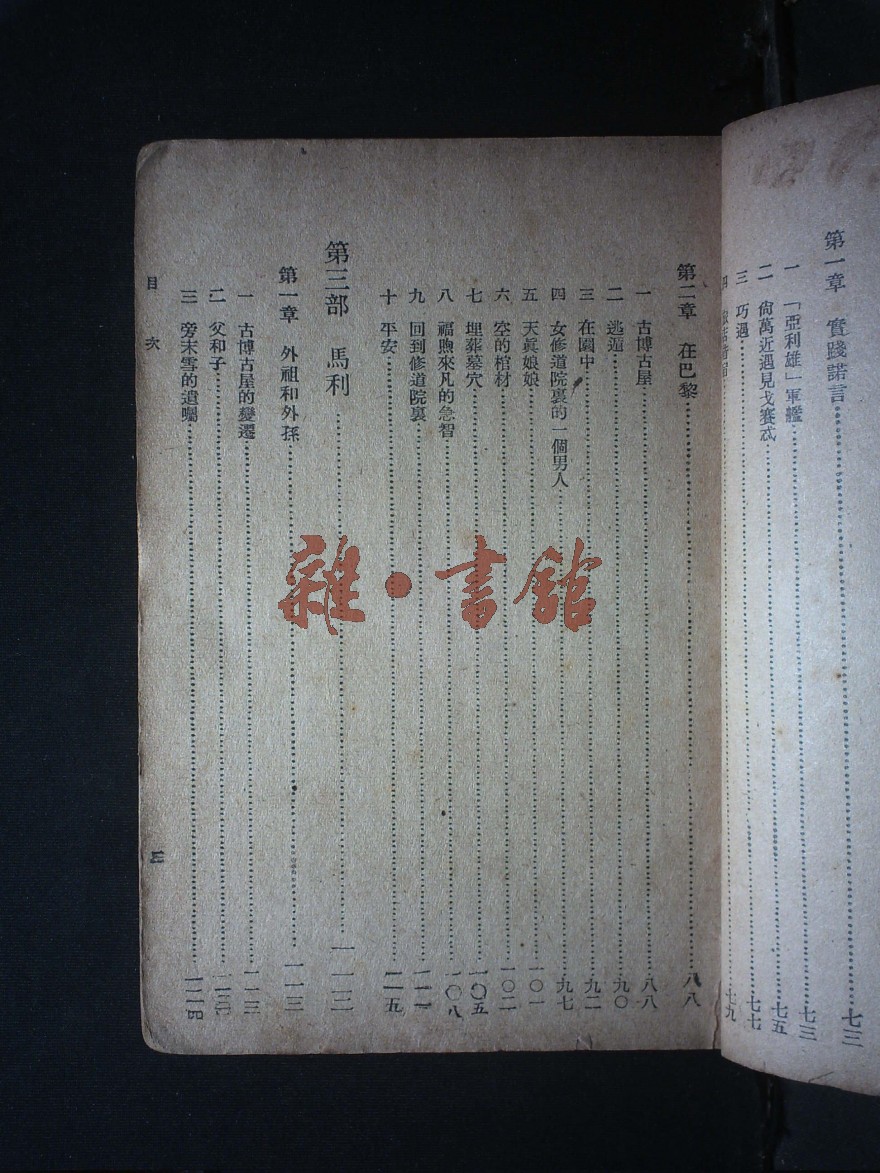 第一章 實踐諾言……七三
一 「亞利雄」軍艦……七三
二 尙萬近遇見戈賽忒……七五
三 巧遇……七七
四……七九
第二章 在巴黎……八八
一 古博古屋……八八
二 逃遁……九〇
三 在園中……九二
四 女修道院裏的一個男人……九七
五 天眞娘娘……一〇一
六 空的棺材……一〇二
七 埋葬墓穴……一〇五
八 福煦來凡的急智……一〇八
九 回到修道院裏……一一一
十 平安……一一五
第三部 馬利……一一三
第一章 外祖和外孫……一一三
一 古博古屋的變遷……一一三
二 父和子……
三 旁末雪的遺囑……一二四
目次
三
雜·書館